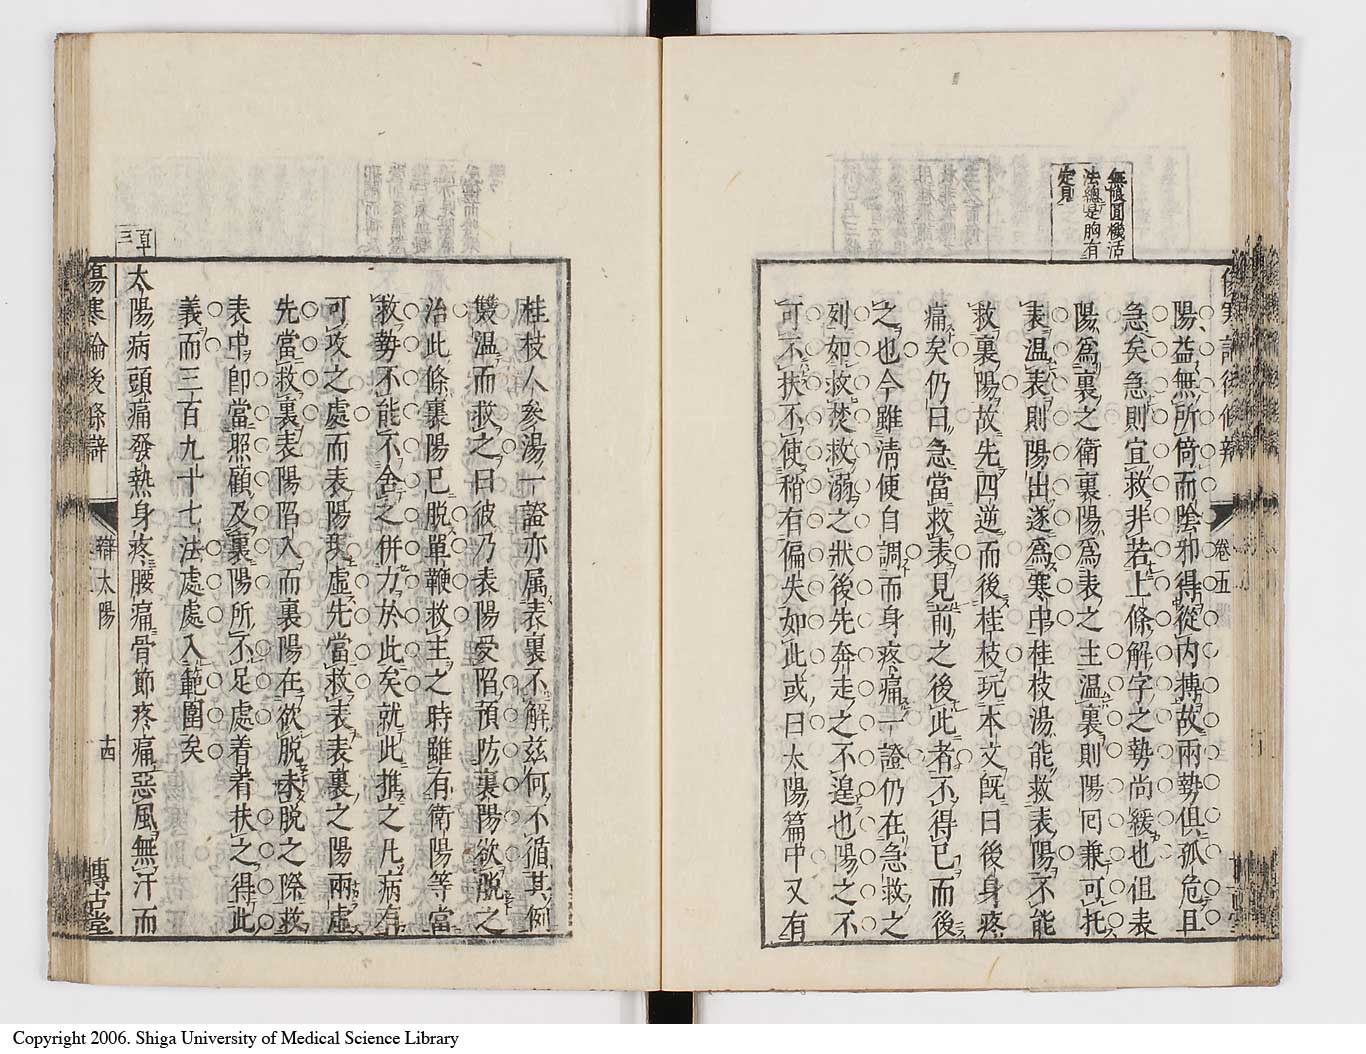 無限圓機活
法總是胸有
定見
陽益無所倚而陰邪得從内搏故兩勢俱孤危且
急矣急則宜救非若上條解字之勢尚緩也但表
陽爲裏之衛裏陽爲表之主温裏則陽回兼可托
表温表則陽出遂爲寒中桂枝湯能救表陽不能
救裏陽故先四逆而後桂枝玩本文既曰後身疼
痛矣仍曰急當救表見前之後此者不得已而後
之也今雖清便自調而身疼痛一證仍在急救之
列如救焚救溺之狀後先奔走之不遑也陽之不
可不扶不使稍有偏失如此或曰太陽篇中又有
卷五
桂枝人參湯一證亦属表裏不解兹何不循其例
雙温而救之曰彼乃表陽受陷預防裏陽欲脱之
治此條裏陽已脱單鞭救主之時雖有衛陽等當
救勢不能不舍之併力於此矣就此推之凡病有
可攻之處而表陽現虚先當救表表裏之陽兩虚
先當救裏表陽陷入而裏陽在欲脱未脱之際救
表中卽當照顧及裏陽所不足處着着扶之得此
義而三百九十七法處處入範圍矣
百
三
太陽病頭痛發熱身疼腰痛骨節疼痛惡風無汗而
傷寒論後條辯
辯太陽
十四
博古堂
Copyright 2006. Shiga University of Medical Science Library